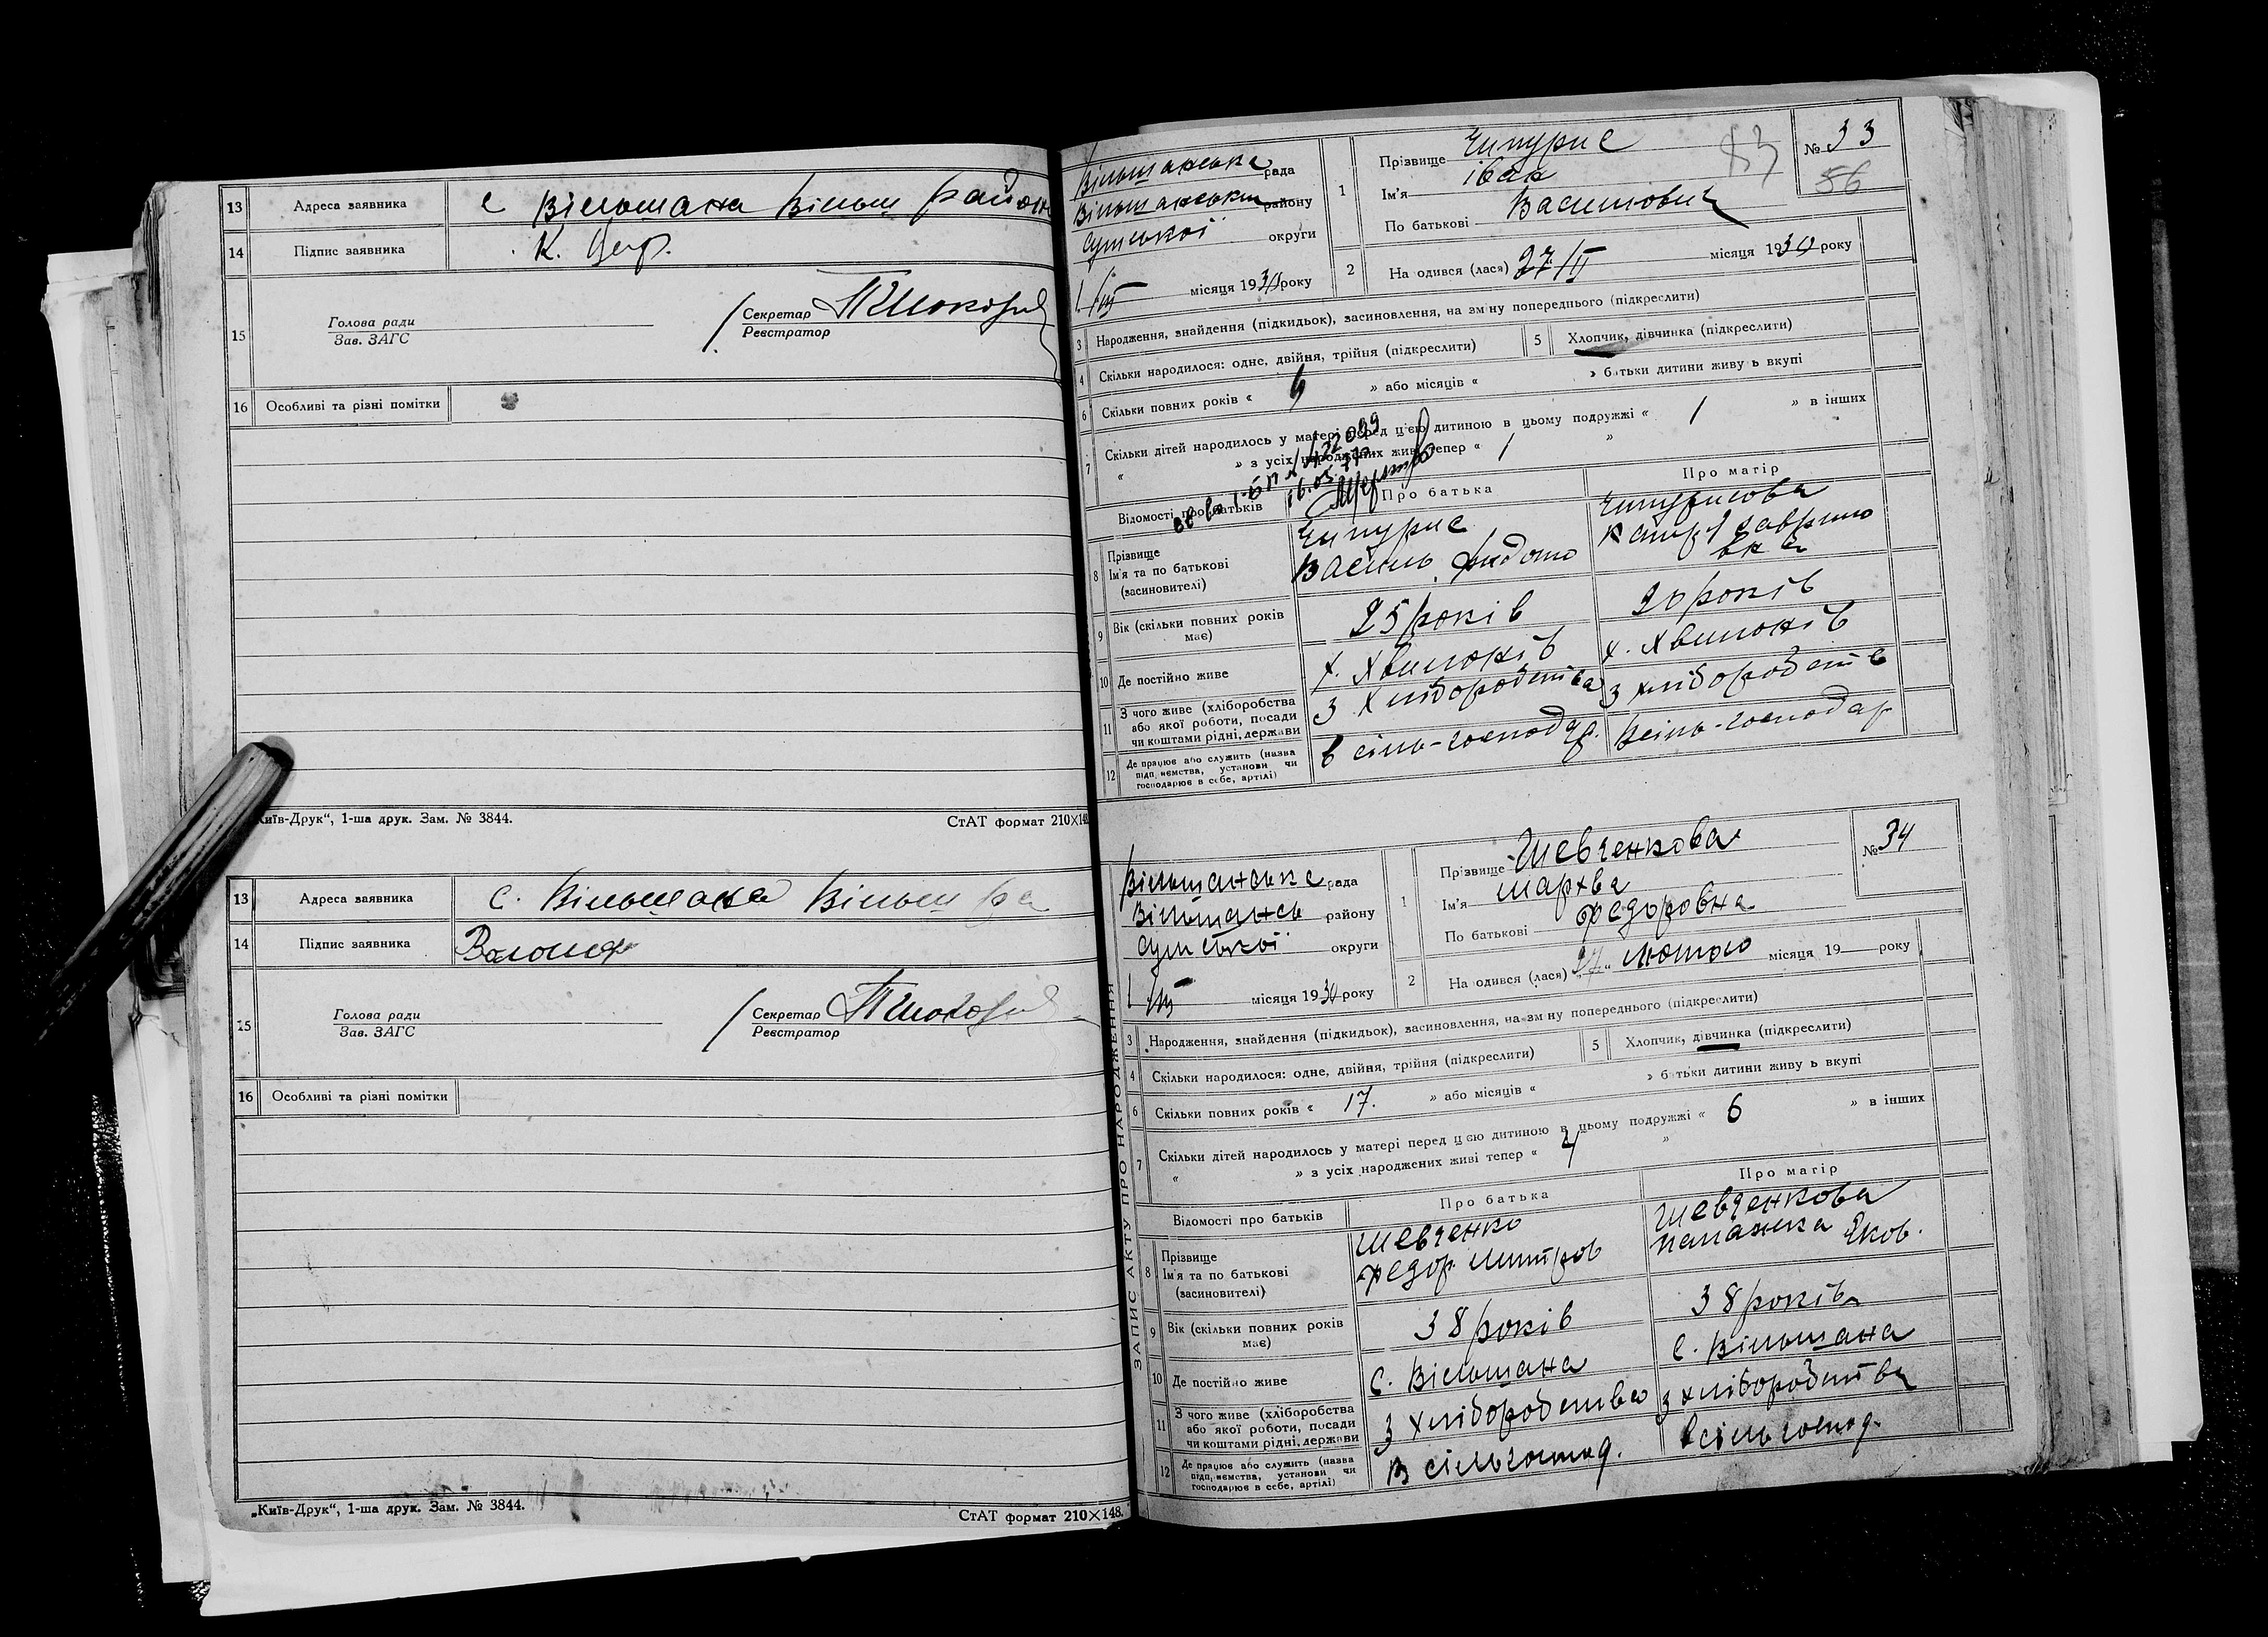 13 Адреса заявника с Вільшана Вільш район
14 Підпис заявника К.
15 Голова ради
Зав. ЗАГС
Секретар
Реєстратор
16 Особливі та різні помітки
„Київ-Друк“, 1-ша друк. Зам. № 3844. СтАТ формат 210×148.
13 Адреса заявника с. Вільшана Вільш ра
14 Підпис заявника
15 Голова ради
Зав. ЗАГС
Секретар
Реєстратор
16 Особливі та різні помітки
„Київ-Друк“, 1-ша друк. Зам. № 3844. СтАТ формат 210×148.
Вільшанська рада
Вільшанськи району
Сумської округи
1/III місяця 1930 року
1 Прізвище Чипурис
Ім'я Іван
По батькові Васильович
№ 33
83
56
2 На одився (лася) 27/II місяця 1930 року
3 Народження, знайдення (підкидьок), засиновлення, на зміну попереднього (підкреслити)
4 Скільки народилося: одне, двійня, трійня (підкреслити)
5 Хлопчик, дівчинка (підкреслити)
6 Скільки повних років « 4 » або місяців « » батьки дитини живуть вкупі
7 Скільки дітей народилось у матері перед цією дитиною в цьому подружжі « 1 » в інших
« » з усіх народжених живі тепер « 1 »
Відомості про батьків Про батька Про матір
8 Прізвище
Ім'я та по батькові
(засиновителі)
Чипурис
Василь
Чипурисова
9 Вік (скільки повних років має) 25 років 20 років
10 Де постійно живе х. Хвилонів х. Хвилонів
11 З чого живе (хліборобства
або якої роботи, посади
чи коштами рідні, держави
З Хліборобства з хліборобств
12 Де працює або служить (назва
підприємства, установи чи
господарює в себе, артілі)
в сіль-господар. Всіль-господар
ЗАПИС АКТУ ПРО НАРОДЖЕННЯ
Вільшанська рада
Вільшансь району
Сумської округи
1/III місяця 1930 року
1 Прізвище Шевченкова
Ім'я Мархва
По батькові Федоровна
№ 34
2 На одився (лася) „27“ лютого місяця 19 року
3 Народження, знайдення (підкидьок), засиновлення, на зміну попереднього (підкреслити)
4 Скільки народилося: одне, двійня, трійня (підкреслити)
5 Хлопчик, дівчинка (підкреслити)
6 Скільки повних років « 17. » або місяців « » батьки дитини живуть вкупі
7 Скільки дітей народилось у матері перед цією дитиною в цьому подружжі « 6 » в інших
« » з усіх народжених живі тепер « 4 »
Відомості про батьків Про батька Про матір
8 Прізвище
Ім'я та по батькові
(засиновителі)
Шевченко
Федор Митров
Шевченкова
Палажка Яков.
9 Вік (скільки повних років має) 38 років 38 років
10 Де постійно живе С. Вільшана С. Вільшана
11 З чого живе (хліборобства
або якої роботи, посади
чи коштами рідні, держави
З хліборобства з хліборобства
12 Де працює або служить (назва
підприємства, установи чи
господарює в себе, артілі)
В сільгоспод. всільгоспод.